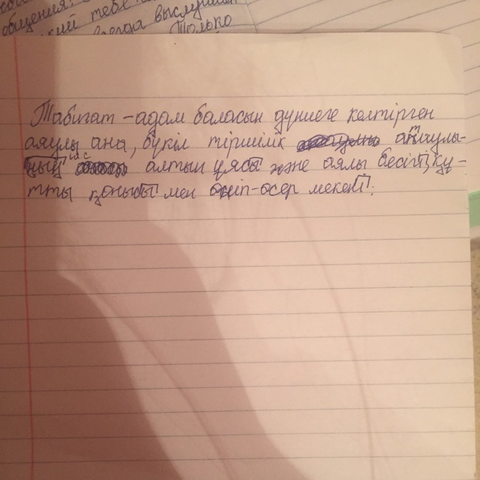 общения.
тебе
всегда выслушай
Только
Табиғат – адам баласын дүниеге келтірген
аяулы ана, бүкіл тіршілік
алтын ұясы және аялы бесігі, құ-
тты қонысы мен өніп-өсер мекені.